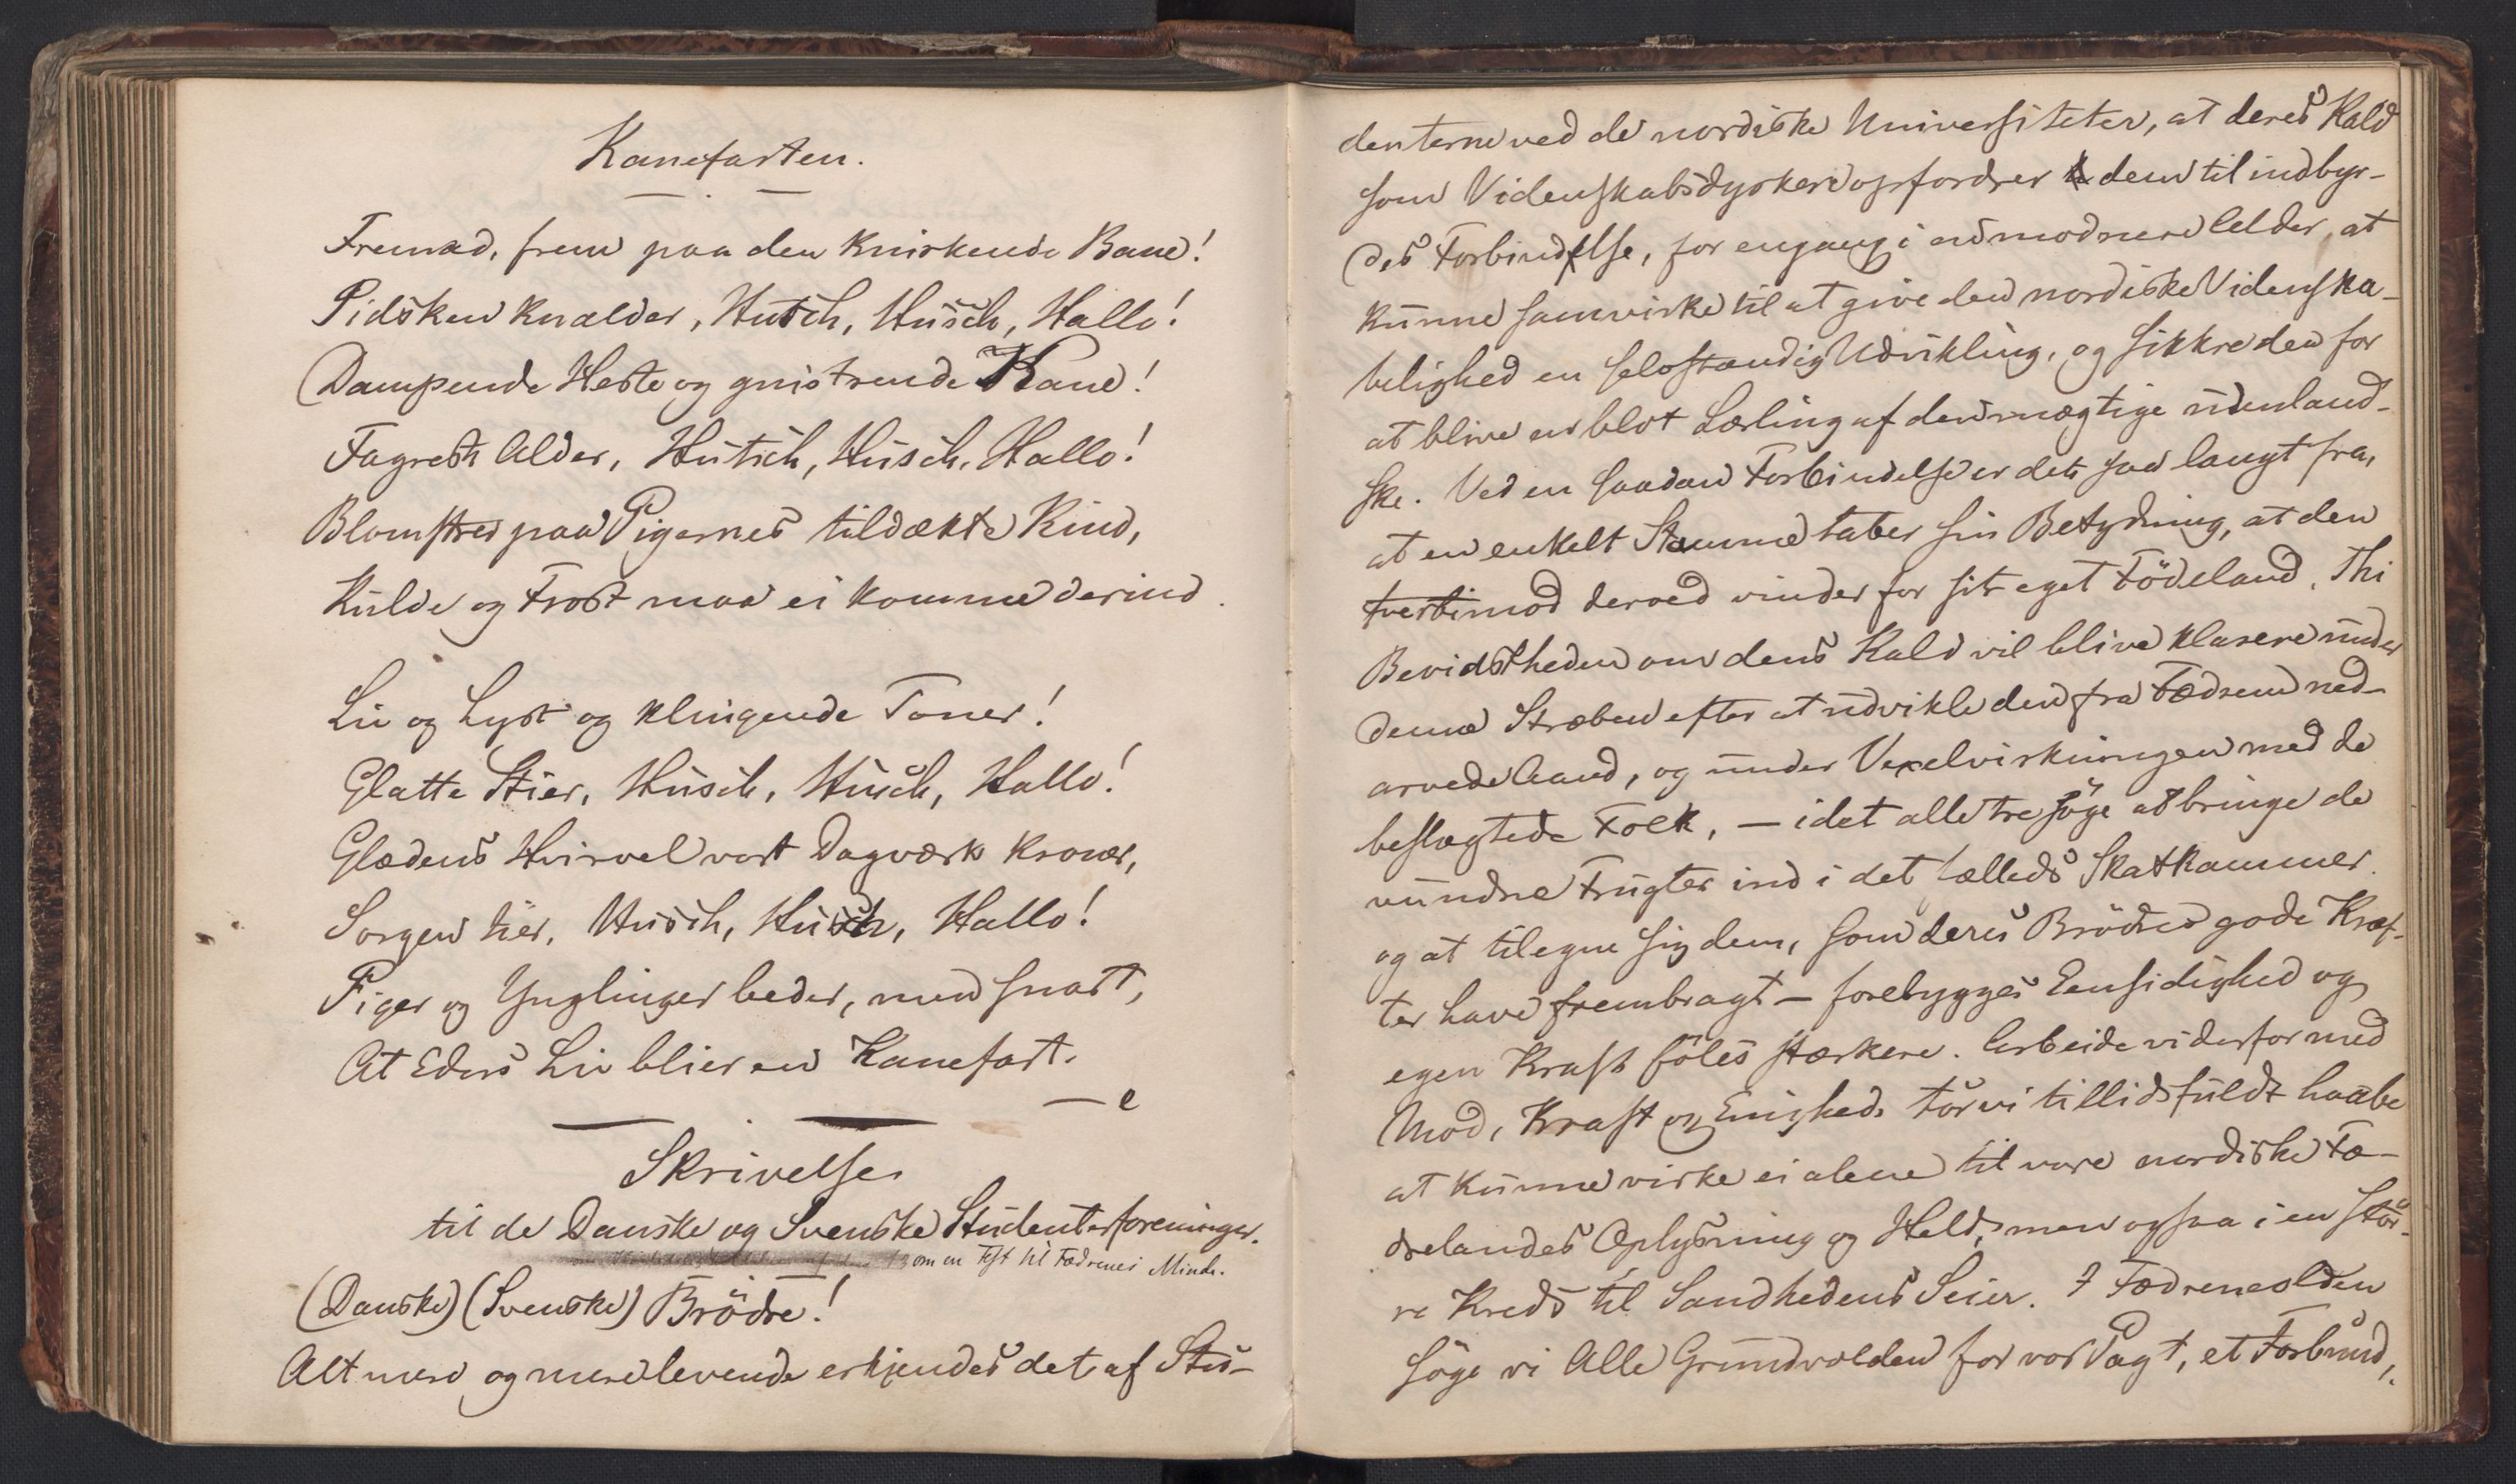 Kanefarten.
Fremad, frem paa den knirkende Bane!
Pidsken knalder, Hutsch, Husch, Hallo!
Dampende Heste og gnistrende Kane!
Fagreste Alder, Hutsch, Husch, Hallo!
Blomstrer paa Pigernes tildækte Kind,
Kulde og Frost maa ei komme derind.
Liv og Lyst og klingende Toner!
Glatte Stier, Husch, Husch, Hallo!
Glædens Hvirvel vort Dagværk kroner,
Sorgen tier, Husch, Husch, Hallo!
Piger og Ynglinger beder, men snart,
At Eders Liv blier en Kanefart.
— e
Skrivelse
til de Danske og Svenske Studenterforeninger.
om en Fest til Fædrenes Minde.
(Danske) (Svenske) Brödre!
Alt mere og mere levende erkjendes det af Stu-
denterne ved de nordiske Universiteter, at deres Kald
som Videnskabsdyrkere opfordrer dem til indbyr-
des Forbindelse, for engang i en modnere Alder, at
kunne samvirke til at give den nordiske Videnska-
belighed en selvstændig Udvikling, og sikkre den for
at blive en blot Lærling af den mægtige udenland-
ske. Ved en saadan Forbindelse er det saa langt fra,
at en enkelt Stamme taber sin Betydning, at den
tvertimod derved vinder for sit eget Födeland. Thi
Bevidstheden om dens Kald vil blive klarere under
denne Stræben efter at udvikle den fra Fædrene ned-
arvede Aand, og under Vexelvirkningen med de
beslægtede Folk, — idet alle tre söge at bringe de
vundne Frugter ind i det fælleds Skatkammer
og at tilegne sig dem, som deres Brödres gode Kræf-
ter have frembragt — forebygges Eensidighed og
egen Kraft föles stærkere. Arbeide vi derfor med
Mod, Kraft og Enighed, tör vi tillidsfuldt haabe
at kunne virke ei alene til vore nordiske Fæ-
drelandes Oplysning og Held, men ogsaa i en stör-
re Kreds til Sandhedens Seier. I Fædreneolden
söge vi Alle Grundvolden for vor Pagt, et Forbund,